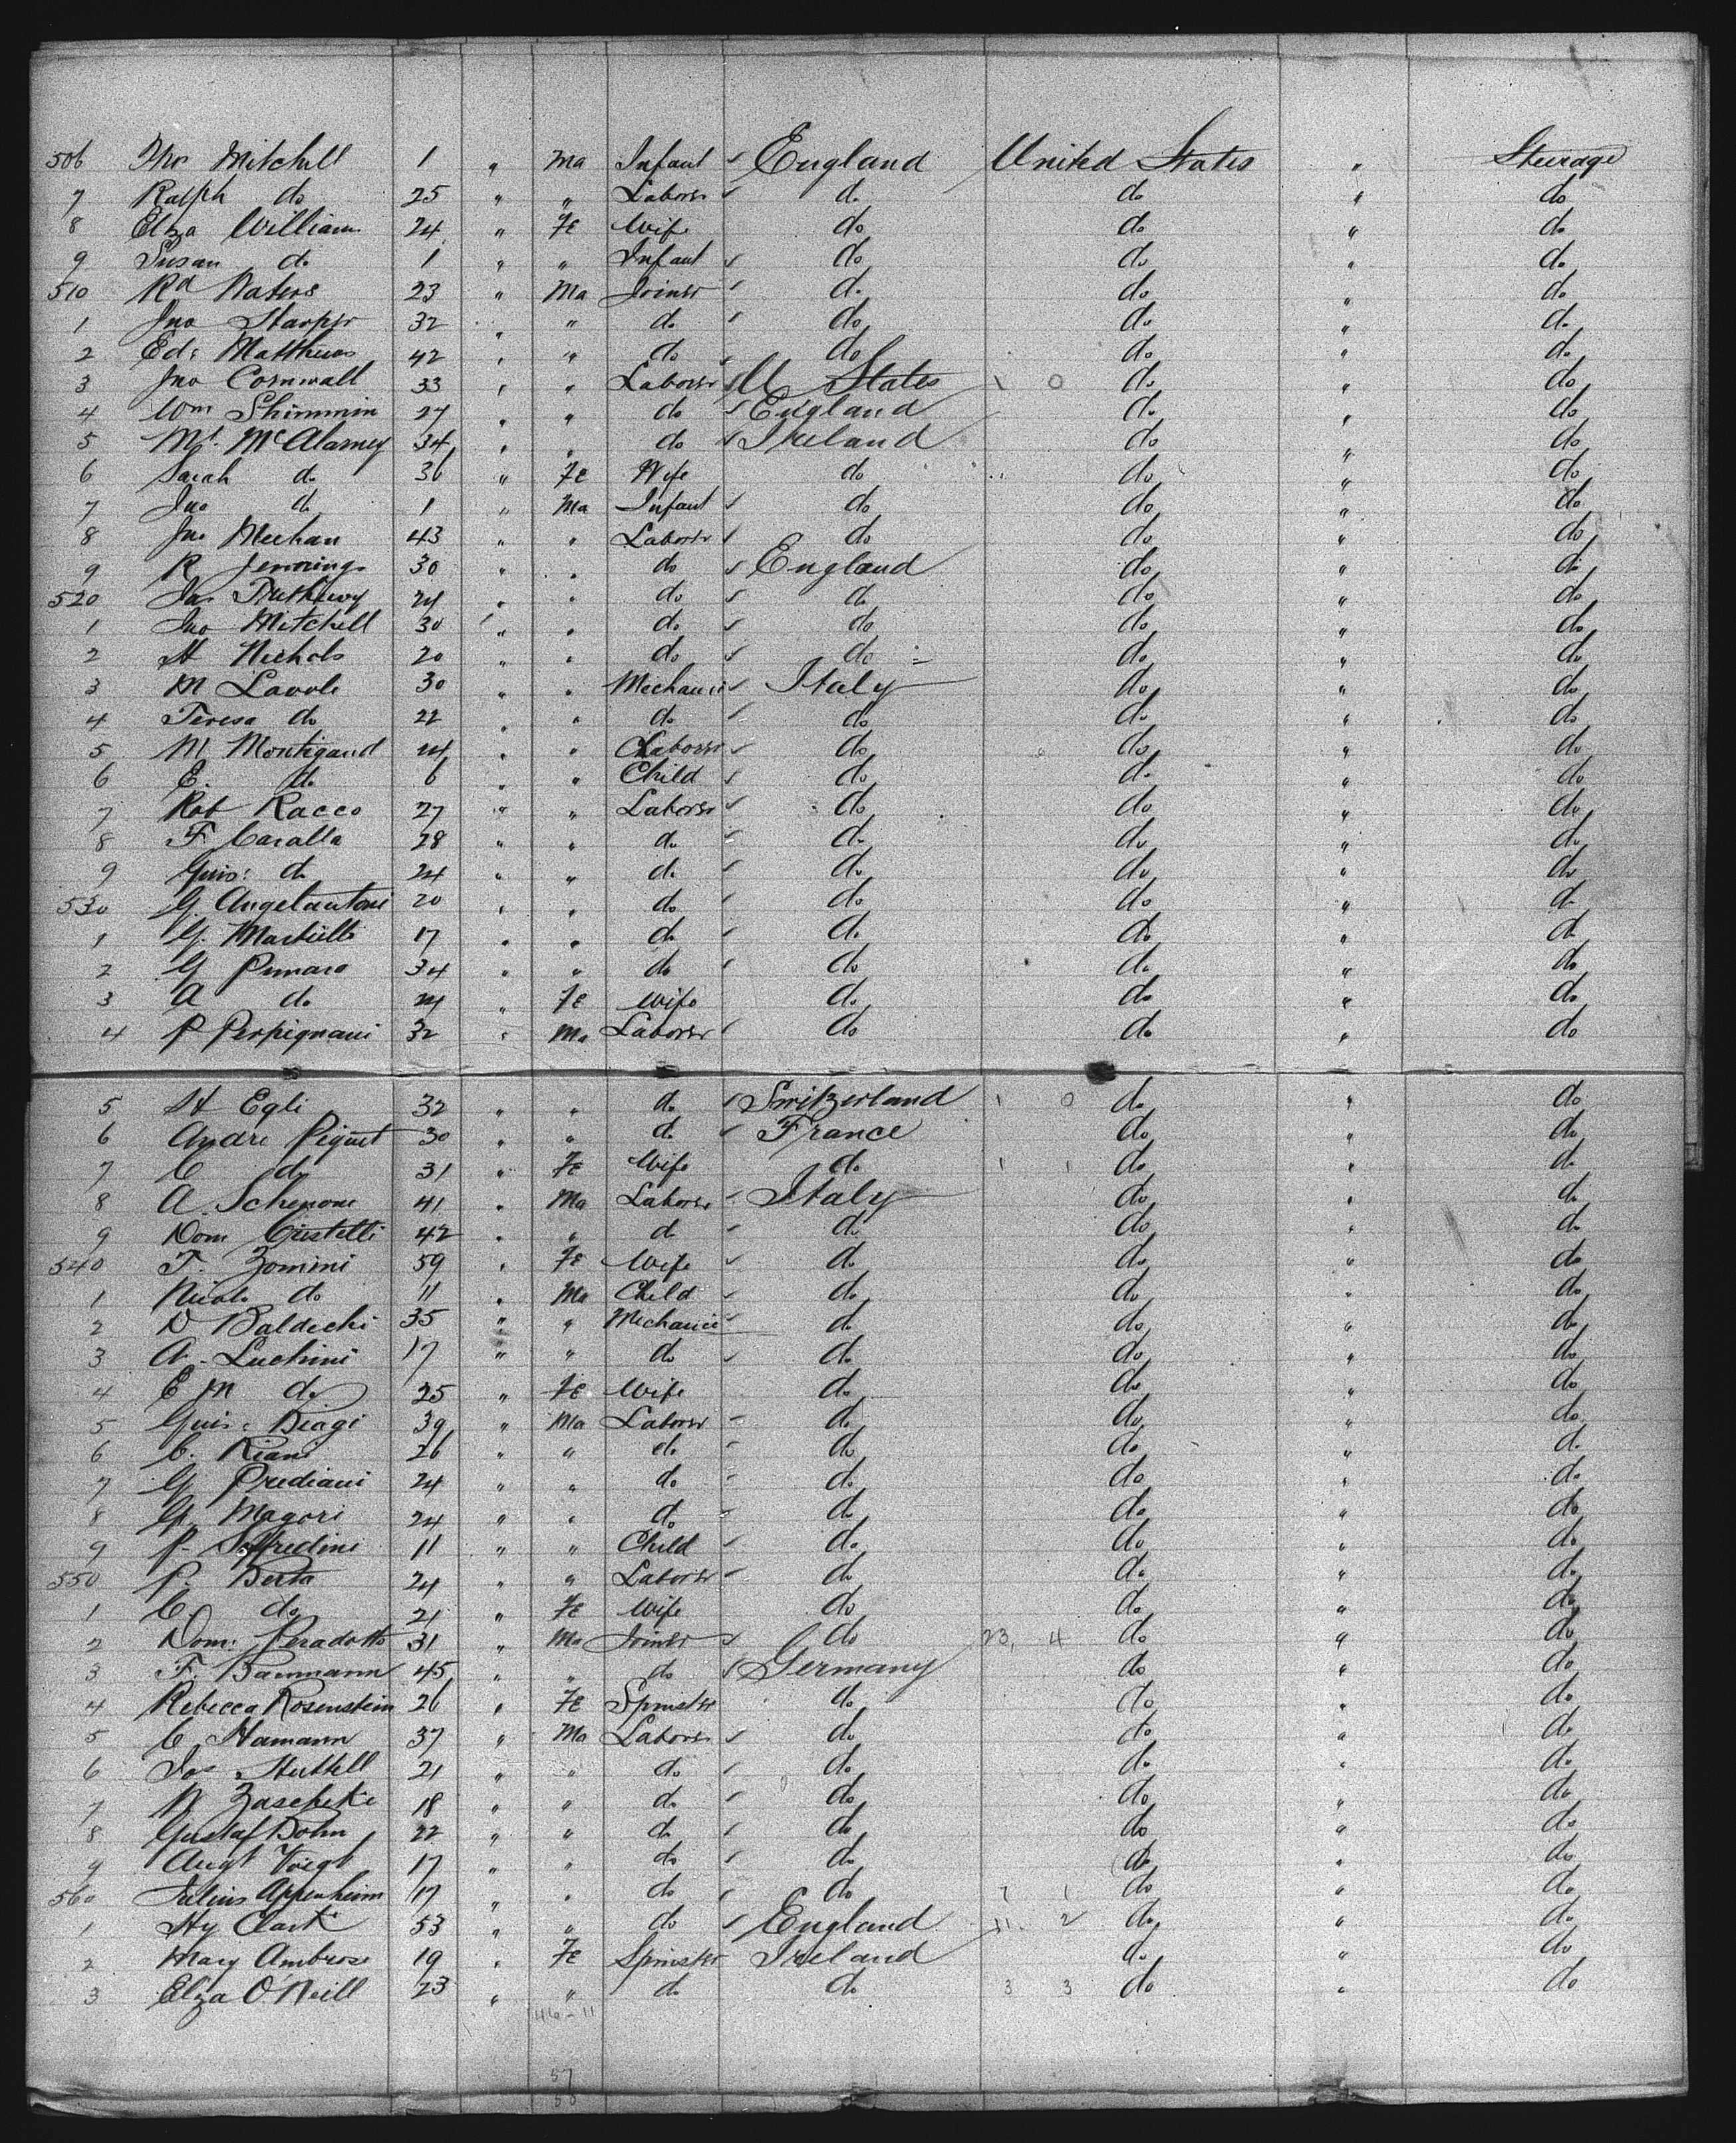 506 Thos Mitchell 1 " Ma Infant England United States " Steerage
7 Ralph do 25 " " Laborer do do " do
8 Elza William 24 " Fe Wife do do " do
9 Susan do 1 " " Infant do do " do
510 Rd Waters 23 " Ma Joiner do do " do
1 Jno Harper 32 " " do do do " do
2 Ed: Matthews 42 " " do do do " do
3 Jno Cornwall 33 " " Laborer U States 1 0 do " do
4 Wm Shimmin 27 " " do England do " do
5 Mt. McAlarney 34 " " do Ireland do " do
6 Sarah do 36 " Fe Wife do do " do
7 Jno do 1 " Ma Infant do do " do
8 Jno Meehan 43 " " Laborer do do " do
9 R Jennings 30 " " do England do " do
520 Jas Truthewy 24 " " do do do " do
1 Jno Mitchell 30 " " do do do " do
2 H Nichols 20 " " do do do " do
3 M Lavole 30 " " Mechanic Italy do " do
4 Teresa do 22 " " do do do " do
5 M Montigand 24 " " Laborer do do " do
6 E. do 6 " " Child do do " do
7 Rob Racco 27 " " Laborer do do " do
8 F Caralla 28 " " do do do " do
9 Guis: do 24 " " do do do " do
530 G. Angelantoni 20 " " do do do " do
1 G. Martielli 17 " " do do do " do
2 G Pimaro 34 " " do do do " do
3 A do 24 " Fe Wife do do " do
4 P Perpignani 32 " Ma Laborer do do " do
5 H Egli 32 " " do Switzerland 1 0 do " do
6 Andre Piquet 30 " " do France do " do
7 C do 31 " Fe Wife do 1 1 do " do
8 A. Schenone 41 " Ma Laborer Italy do " do
9 Dom Cristelli 42 " " do do do " do
540 T. Zomini 59 " Fe Wife do do " do
1 Nicolo do 11 " Ma Child do do " do
2 D Baldechi 35 " " Mechanic do do " do
3 A. Luchini 17 " " do do do " do
4 E M do 25 " Fe Wife do do " do
5 Guis: Biagi 39 " Ma Laborer do do " do
6 C. Riani 26 " " do do do " do
7 G Prediani 24 " " do do do " do
8 G. Magori 24 " " do do do " do
9 P. Soffredini 11 " " Child do do " do
550 P. Berta 24 " " Laborer do do " do
1 C. do 21 " Fe Wife do do " do
2 Dom: Peradotto 31 " Ma Joiner do 23, 4 do " do
3 F. Baumann 45 " " do Germany do " do
4 Rebecca Rosenstein 26 " Fe Spinster do do " do
5 C. Hamann 37 " Ma Laborer do do " do
6 Jos Huttell 21 " " do do do " do
7 N Zaschske 18 " " do do do " do
8 Gustaf Bohn 22 " " do do do " do
9 Augt Voigt 17 " " do do do " do
560 Julius Appenheim 17 " " do do 7 1 do " do
1 Hy Clark 53 " " do England 11. 2 do " do
2 Mary Ambrose 19 " Fe Spinster Ireland do " do
3 Elza O'Neill 23 " " do do 3 3 do " do
46-11
57
58